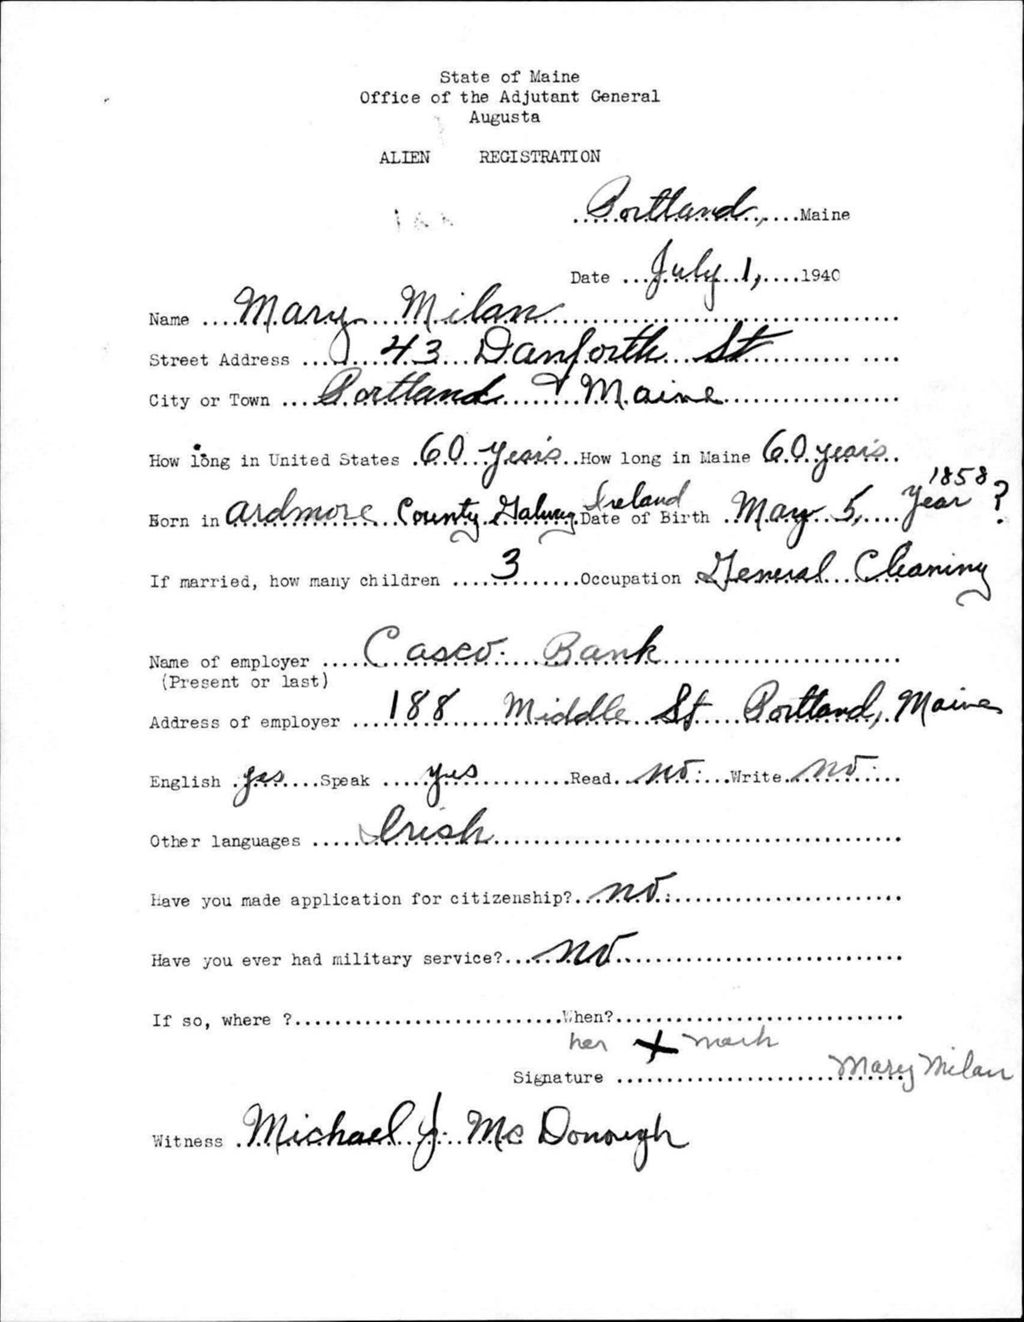 State of Maine
Office of the Adjutant General
Augusta
ALIEN REGISTRATION
Portland, Maine
Date July 1, 1940
Name Mary Milan
Street Address 43 Danforth St
City or Town Portland Maine
How long in United States 60 years How long in Maine 60 years
1858
Born in Ardmore County Galway Ireland Date of Birth May 5, year ?
If married, how many children 3 Occupation General Cleaning
Name of employer Casco Bank
(Present or last)
Address of employer 188 Middle St Portland, Maine
English yes Speak yes Read no Write no
Other languages Irish
Have you made application for citizenship? no
Have you ever had military service? no
If so, where ? When?
her X mark
Signature Mary Milan
Witness Michael J. McDonough